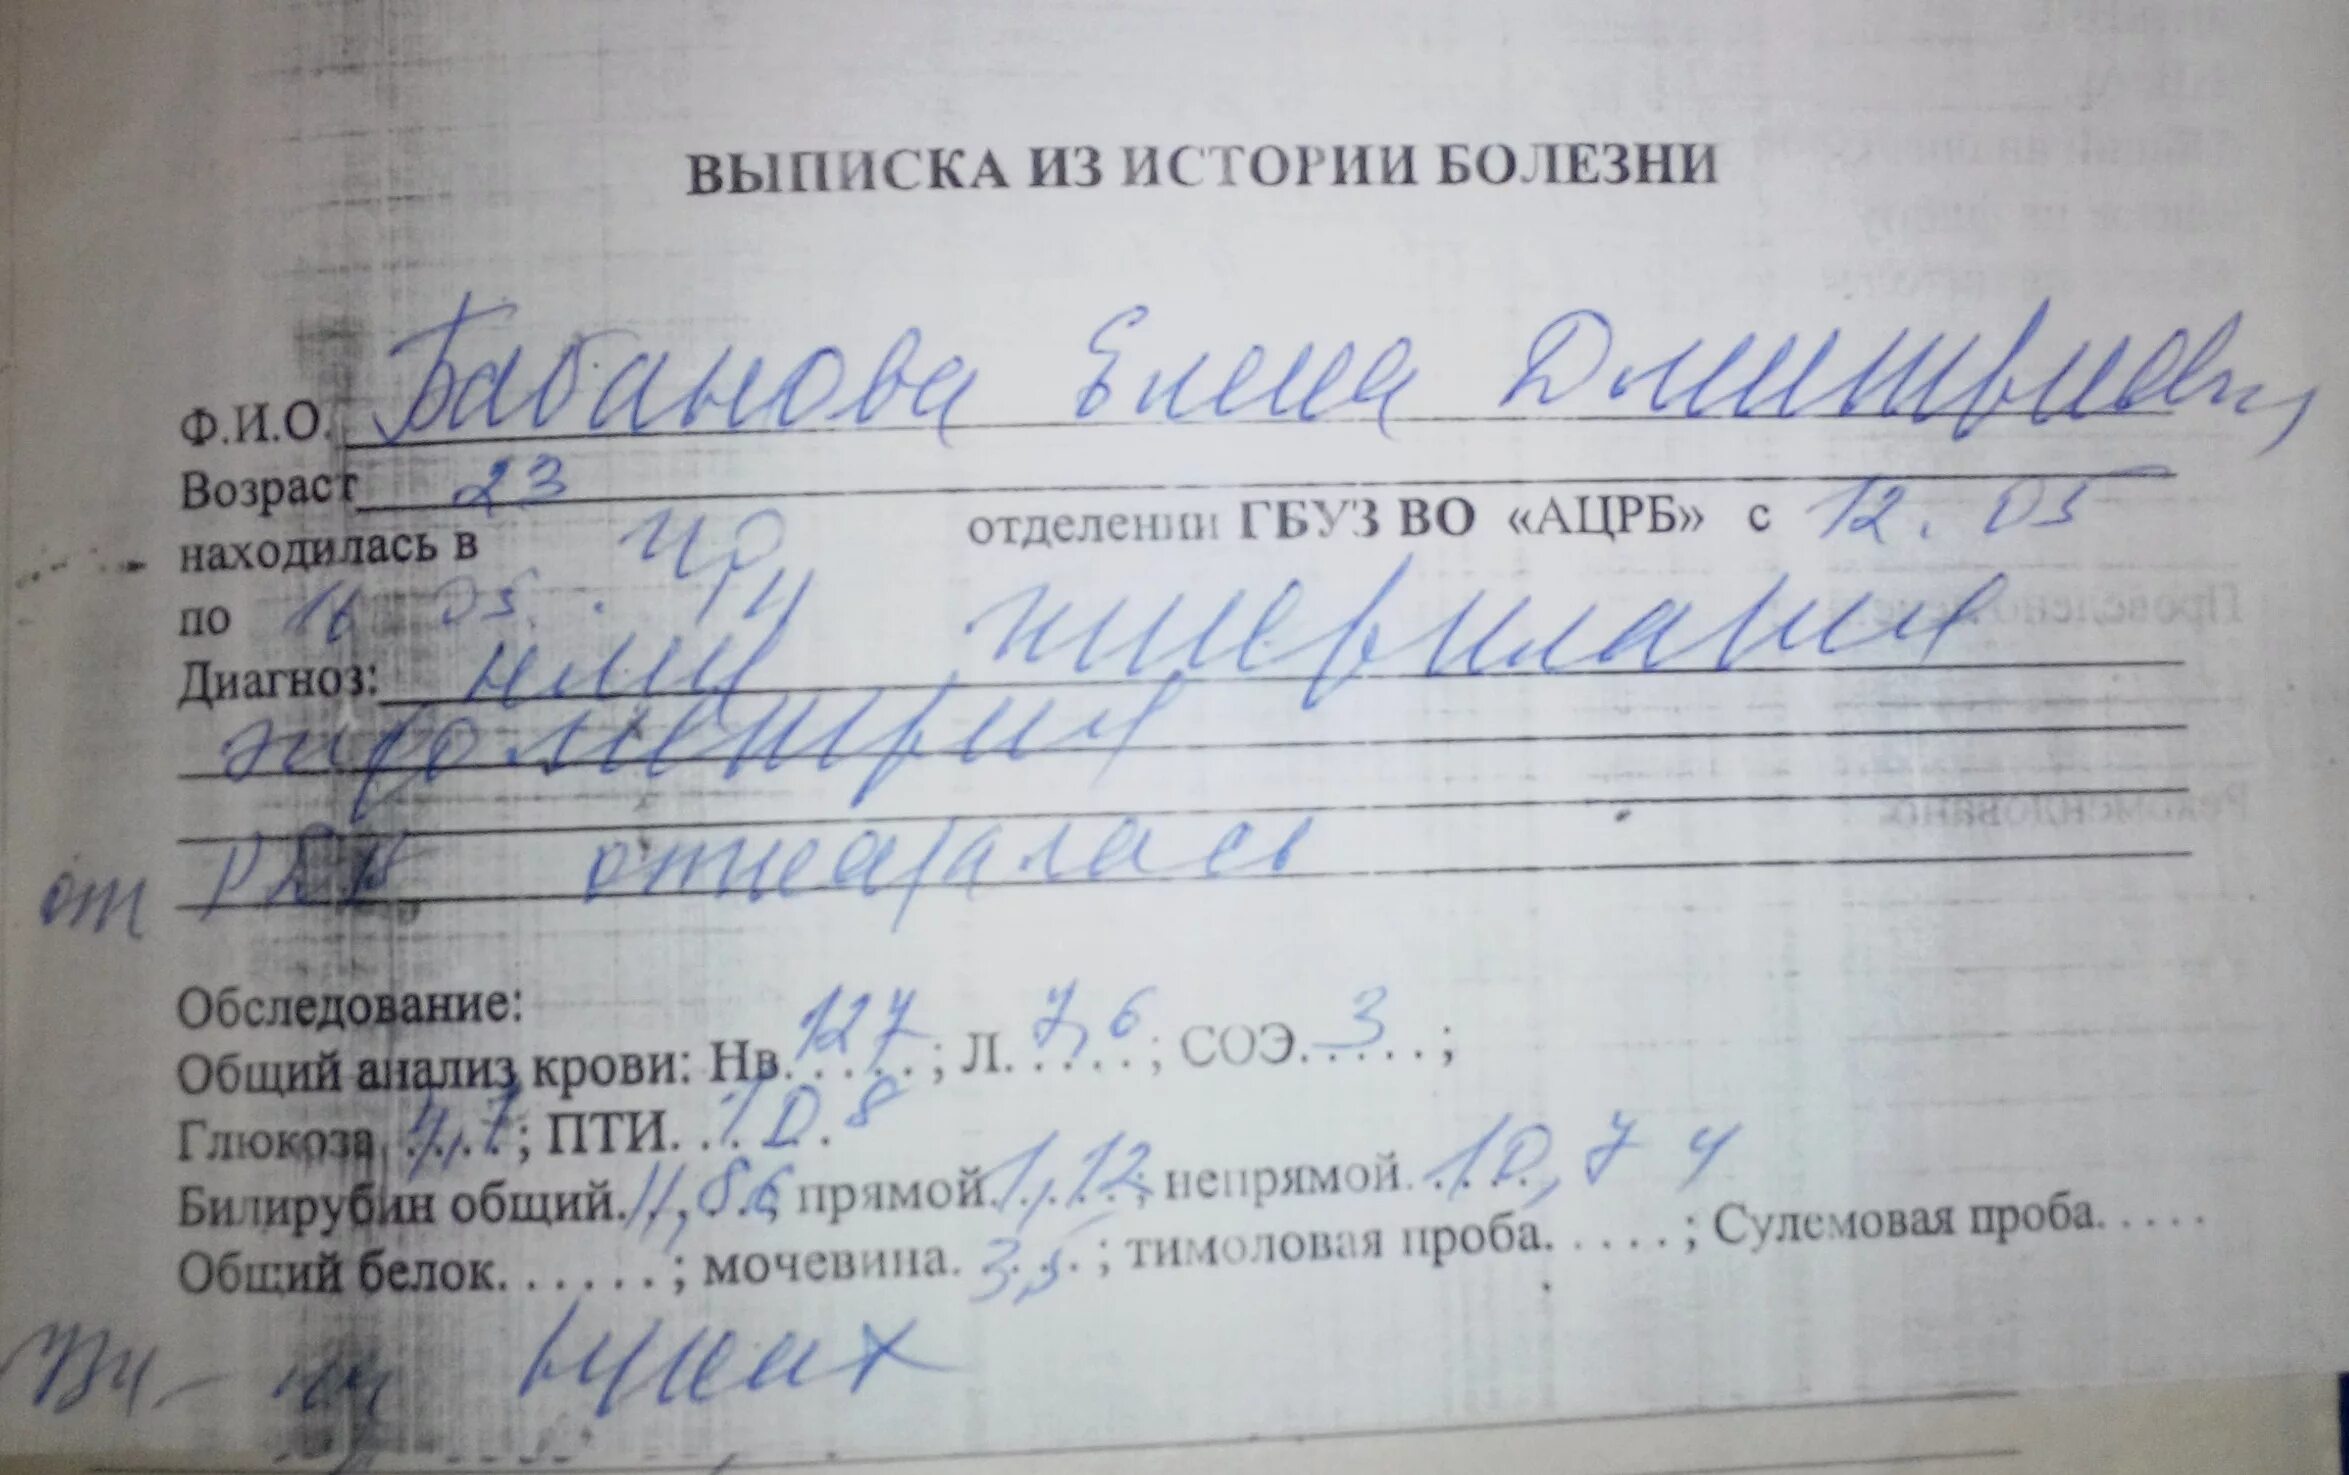 ВЫПИСКА ИЗ ИСТОРИИ БОЛЕЗНИ
Ф.И.О. Бабанова Елена Дмитриевн,
Возраст 23
находилась в г/о отделении ГБУЗ ВО «АЦРБ» с 12.05
по 16 05. 14
Диагноз: НМЦ гиперплазия
эндометрия
от РДВ отказалась
Обследование:
Общий анализ крови: Нв. 127; Л. 7,6; СОЭ. 3;
Глюкоза 4,7; ПТИ. 10.8
Билирубин общий. 11,86; прямой. 1,12; непрямой. 10,74
Общий белок. . . . . . ; мочевина. 3,5; тимоловая проба. . . . . ; Сулемовая проба. . . . .
Проведено
Рекомендовано: